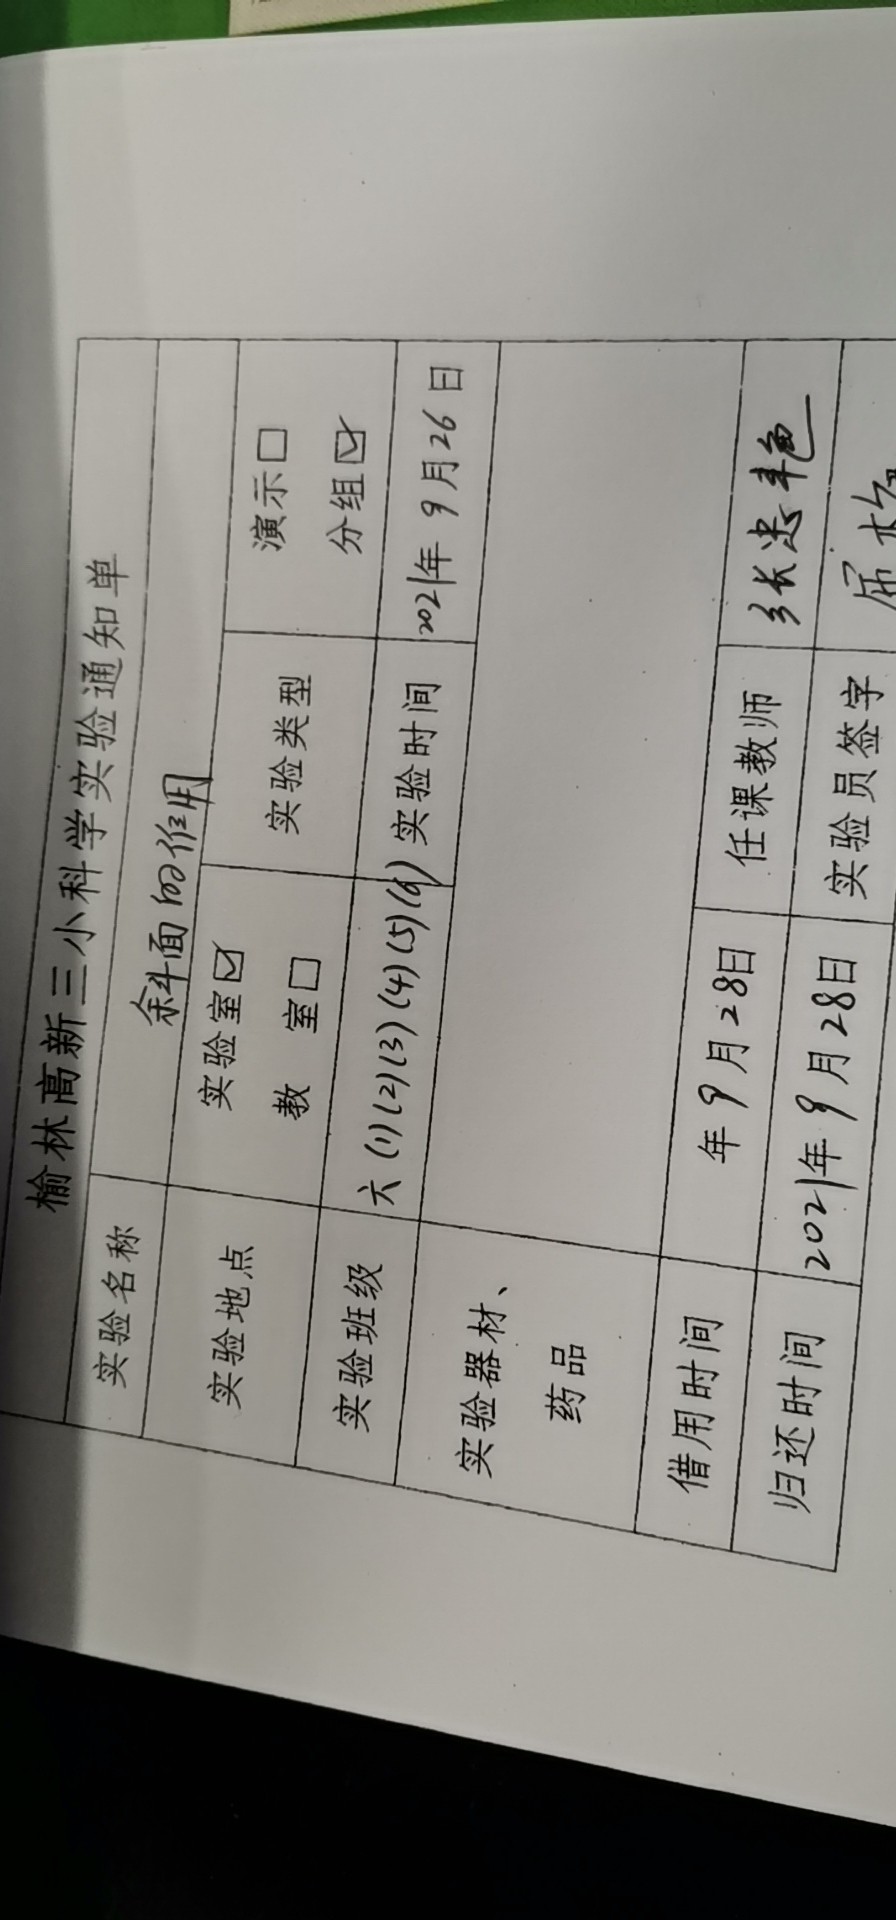 榆林高新三小科学实验通知单
实验名称 斜面的作用
实验地点 实验室☑ 教 室□ 实验类型 演示□ 分组☑
实验班级 六(1)(2)(3)(4)(5)(6) 实验时间 2021年9月26日
实验器材、
药品
借用时间 年9月28日 任课教师 张忠艳
归还时间 2021年9月28日 实验员签字 屈